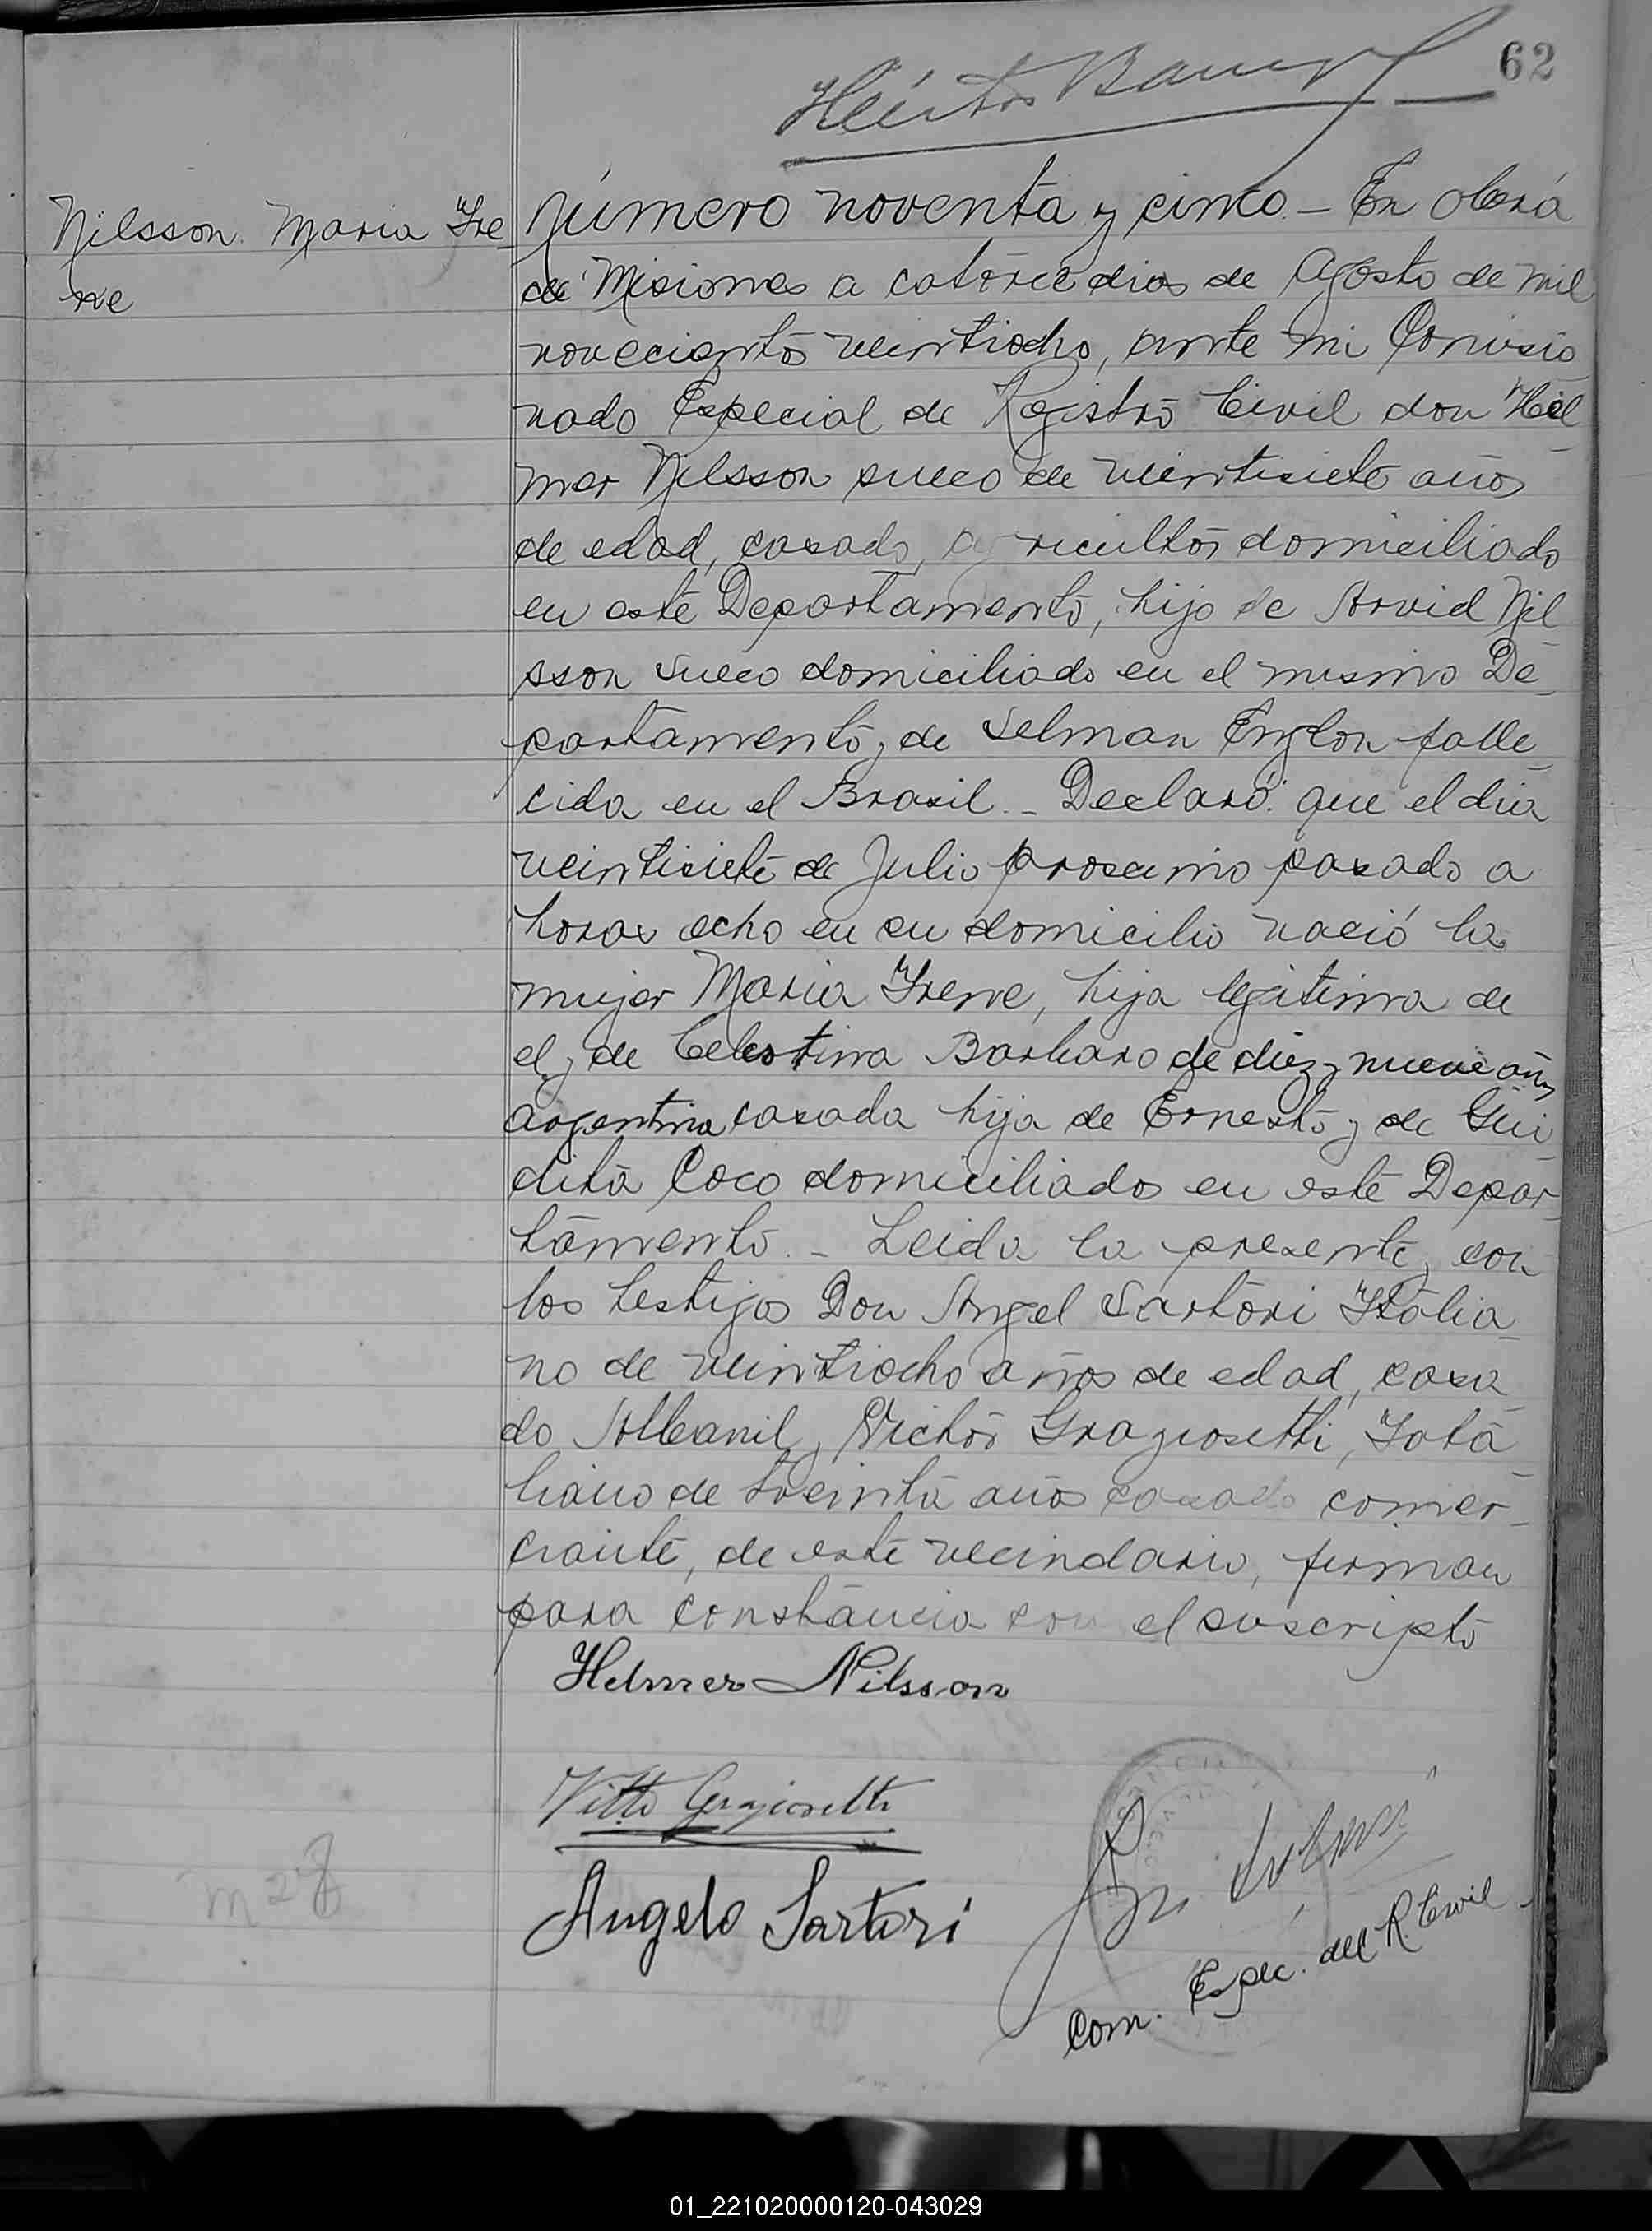 62
Nilsson Maria Ire
ne
Número noventa y cinco. - En Oberá
de Misiones a catorce dias de Agosto de mil
novecientos veintiocho, ante mi Comisio
nado Especial de Registro Civil don Hel
mer Nilsson sueco de veintisiete años
de edad, casado, agricultor domiciliado
en este Departamento, hijo de Arvid Nil
sson sueco domiciliado en el mismo De
partamento y de Selman Englon falle
cida en el Brasil. - Declaró: que el dia
veintisiete de Julio proximo pasado a
horas ocho en su domicilio nació la
mujer Maria Irene, hija legitima de
el y de Celestina Barbaro de diez y nueve años
argentina casada hija de Ernesto y de Giu
dita Coco domiciliados en este Depar
tamento. - Leida la presente, con
los testigos Don Angel Sartori Italia
no de veintiocho años de edad, casa
do Albanil y Victor Graziosetti, Ita
liano de treinta años casado comer
ciante, de este vecindario, firman
para constancia con el suscripto
Helmer Nilsson
Vitto Graziosetti
Angelo Sartori
Com. Espec. del R. Civil
m 28
01_221020000120-043029